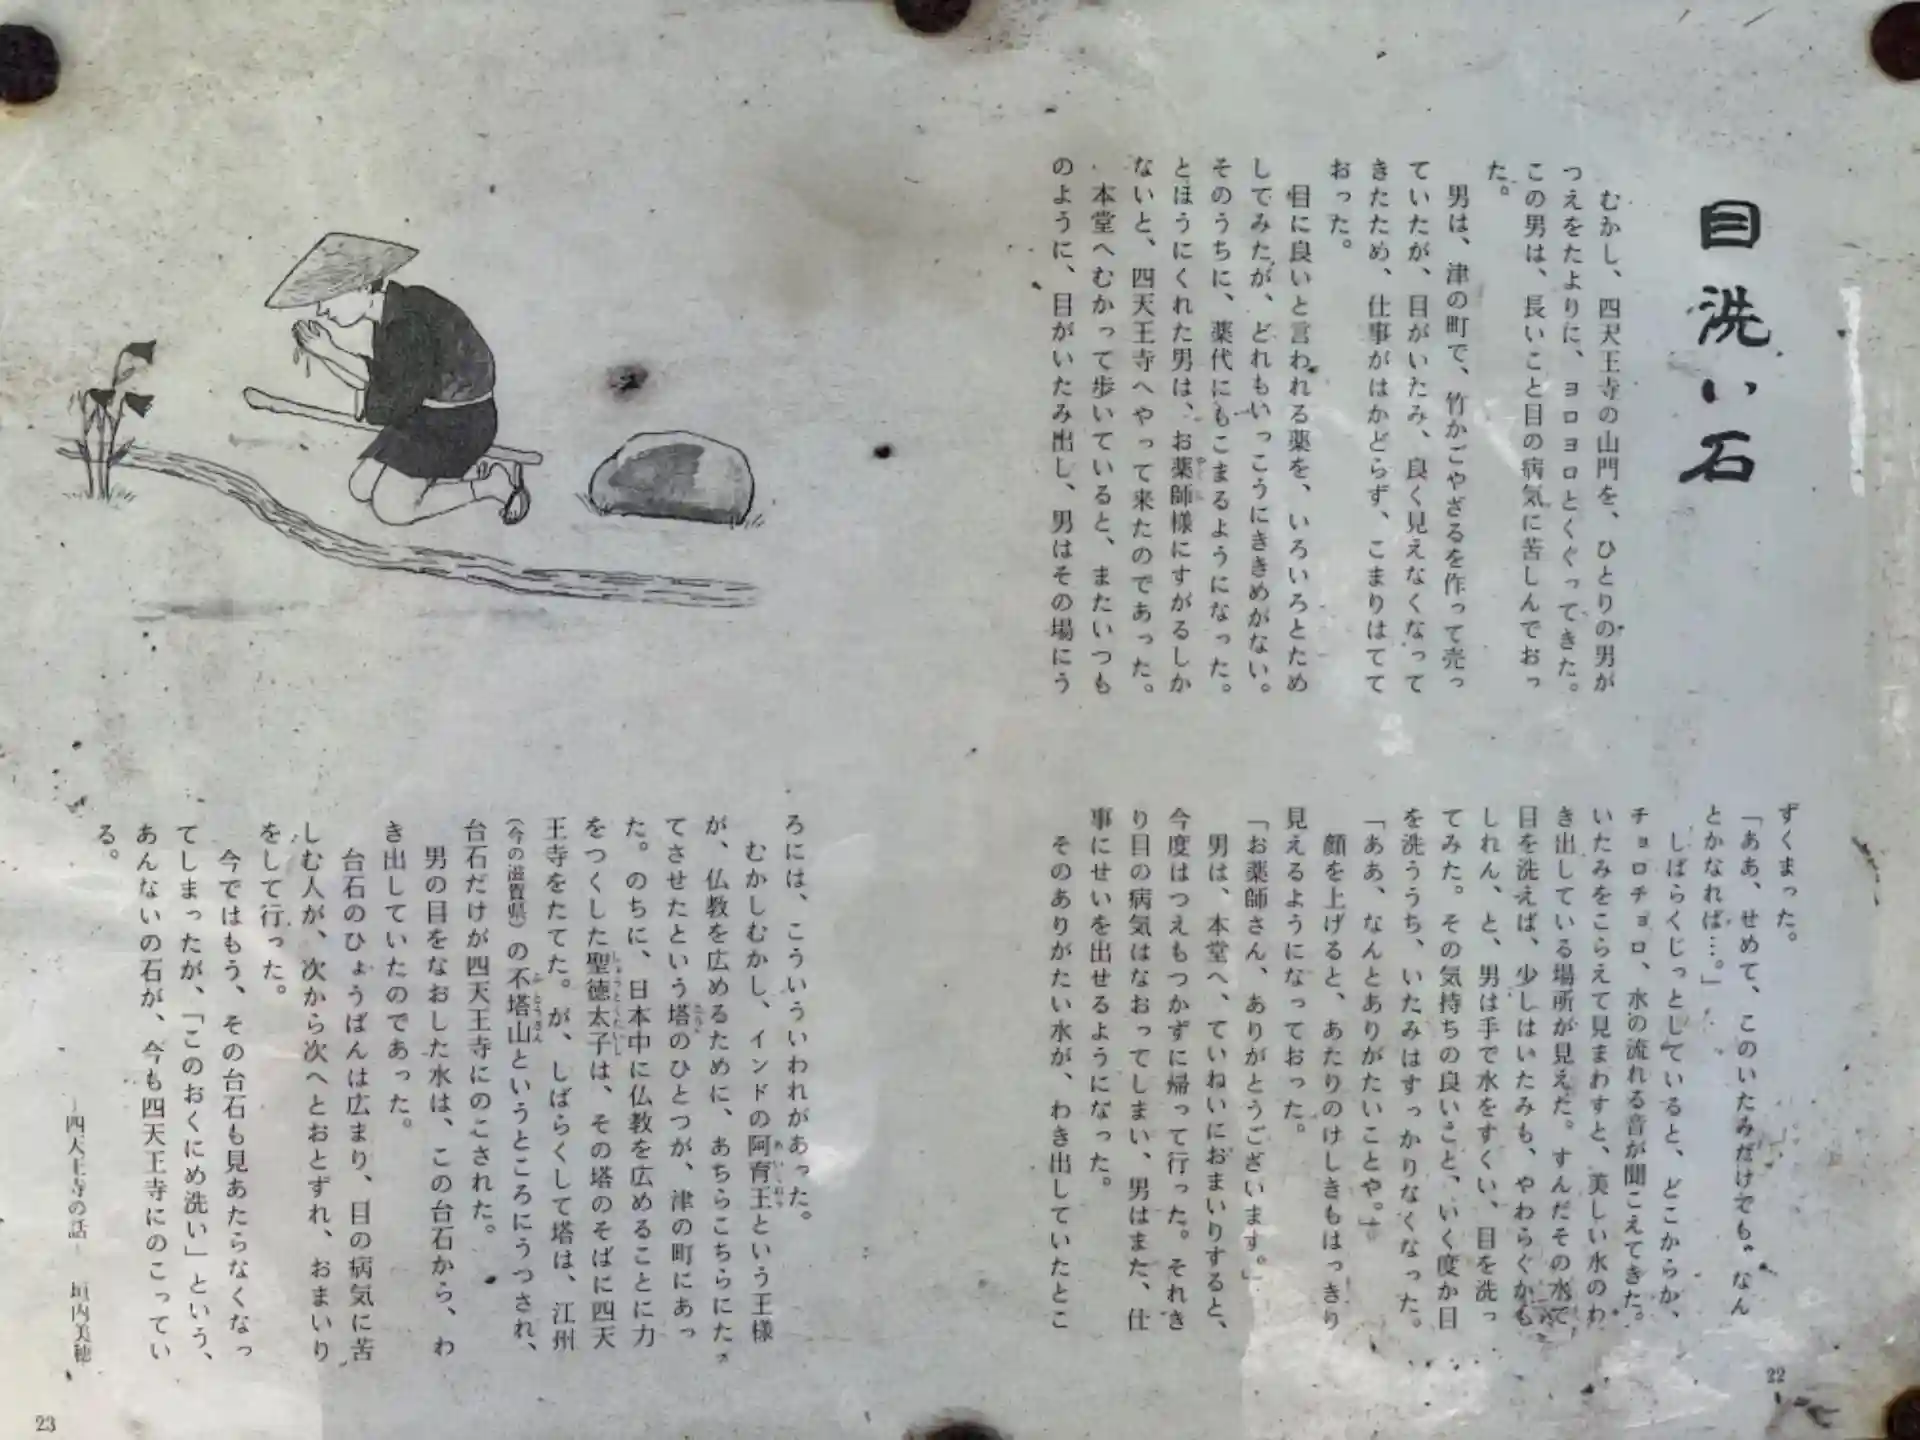 目洗い石
むかし、四天王寺の山門を、ひとりの男が
つえをたよりに、ヨロヨロとくぐってきた。
この男は、長いこと目の病気に苦しんでおっ
た。
男は、津の町で、竹かごやざるを作って売っ
ていたが、目がいたみ、良く見えなくなって
きたため、仕事がはかどらず、こまりはてて
おった。
目に良いと言われる薬を、いろいろとため
してみたが、どれもいっこうにききめがない。
そのうちに、薬代にもこまるようになった。
とほうにくれた男は、お薬師様にすがるしか
ないと、四天王寺へやって来たのであった。
本堂へむかって歩いていると、またいつも
のように、目がいたみ出し、男はその場にう
ずくまった。
「ああ、せめて、このいたみだけでも、なん
とかなれば…。」
しばらくじっとしていると、どこからか、
チョロチョロ、水の流れる音が聞こえてきた。
いたみをこらえて見まわすと、美しい水のわ
き出している場所が見えた。すんだその水で
目を洗えば、少しはいたみも、やわらぐかも
しれん、と、男は手で水をすくい、目を洗っ
てみた。その気持ちの良いこと、いく度か目
を洗ううち、いたみはすっかりなくなった。
「ああ、なんとありがたいことや。」
顔を上げると、あたりのけしきもはっきり
見えるようになっておった。
「お薬師さん、ありがとうございます。」
男は、本堂へ、ていねいにおまいりすると、
今度はつえもつかずに帰って行った。それき
り目の病気はなおってしまい、男はまた、仕
事にせいを出せるようになった。
そのありがたい水が、わき出していたとこ
22
ろには、こういういわれがあった。
むかしむかし、インドの阿育王という王様
が、仏教を広めるために、あちらこちらにた
てさせたという塔のひとつが、津の町にあっ
た。のちに、日本中に仏教を広めることに力
をつくした聖徳太子は、その塔のそばに四天
王寺をたてた。が、しばらくして塔は、江州
(今の滋賀県)の不塔山というところにうつされ、
台石だけが四天王寺にのこされた。
男の目をなおした水は、この台石から、わ
き出していたのであった。
台石のひょうばんは広まり、目の病気に苦
しむ人が、次から次へとおとずれ、おまいり
をして行った。
今ではもう、その台石も見あたらなくなっ
てしまったが、「このおくにめ洗い」という、
あんないの石が、今も四天王寺にのこってい
る。
−四天王寺の話− 垣内美穂
23